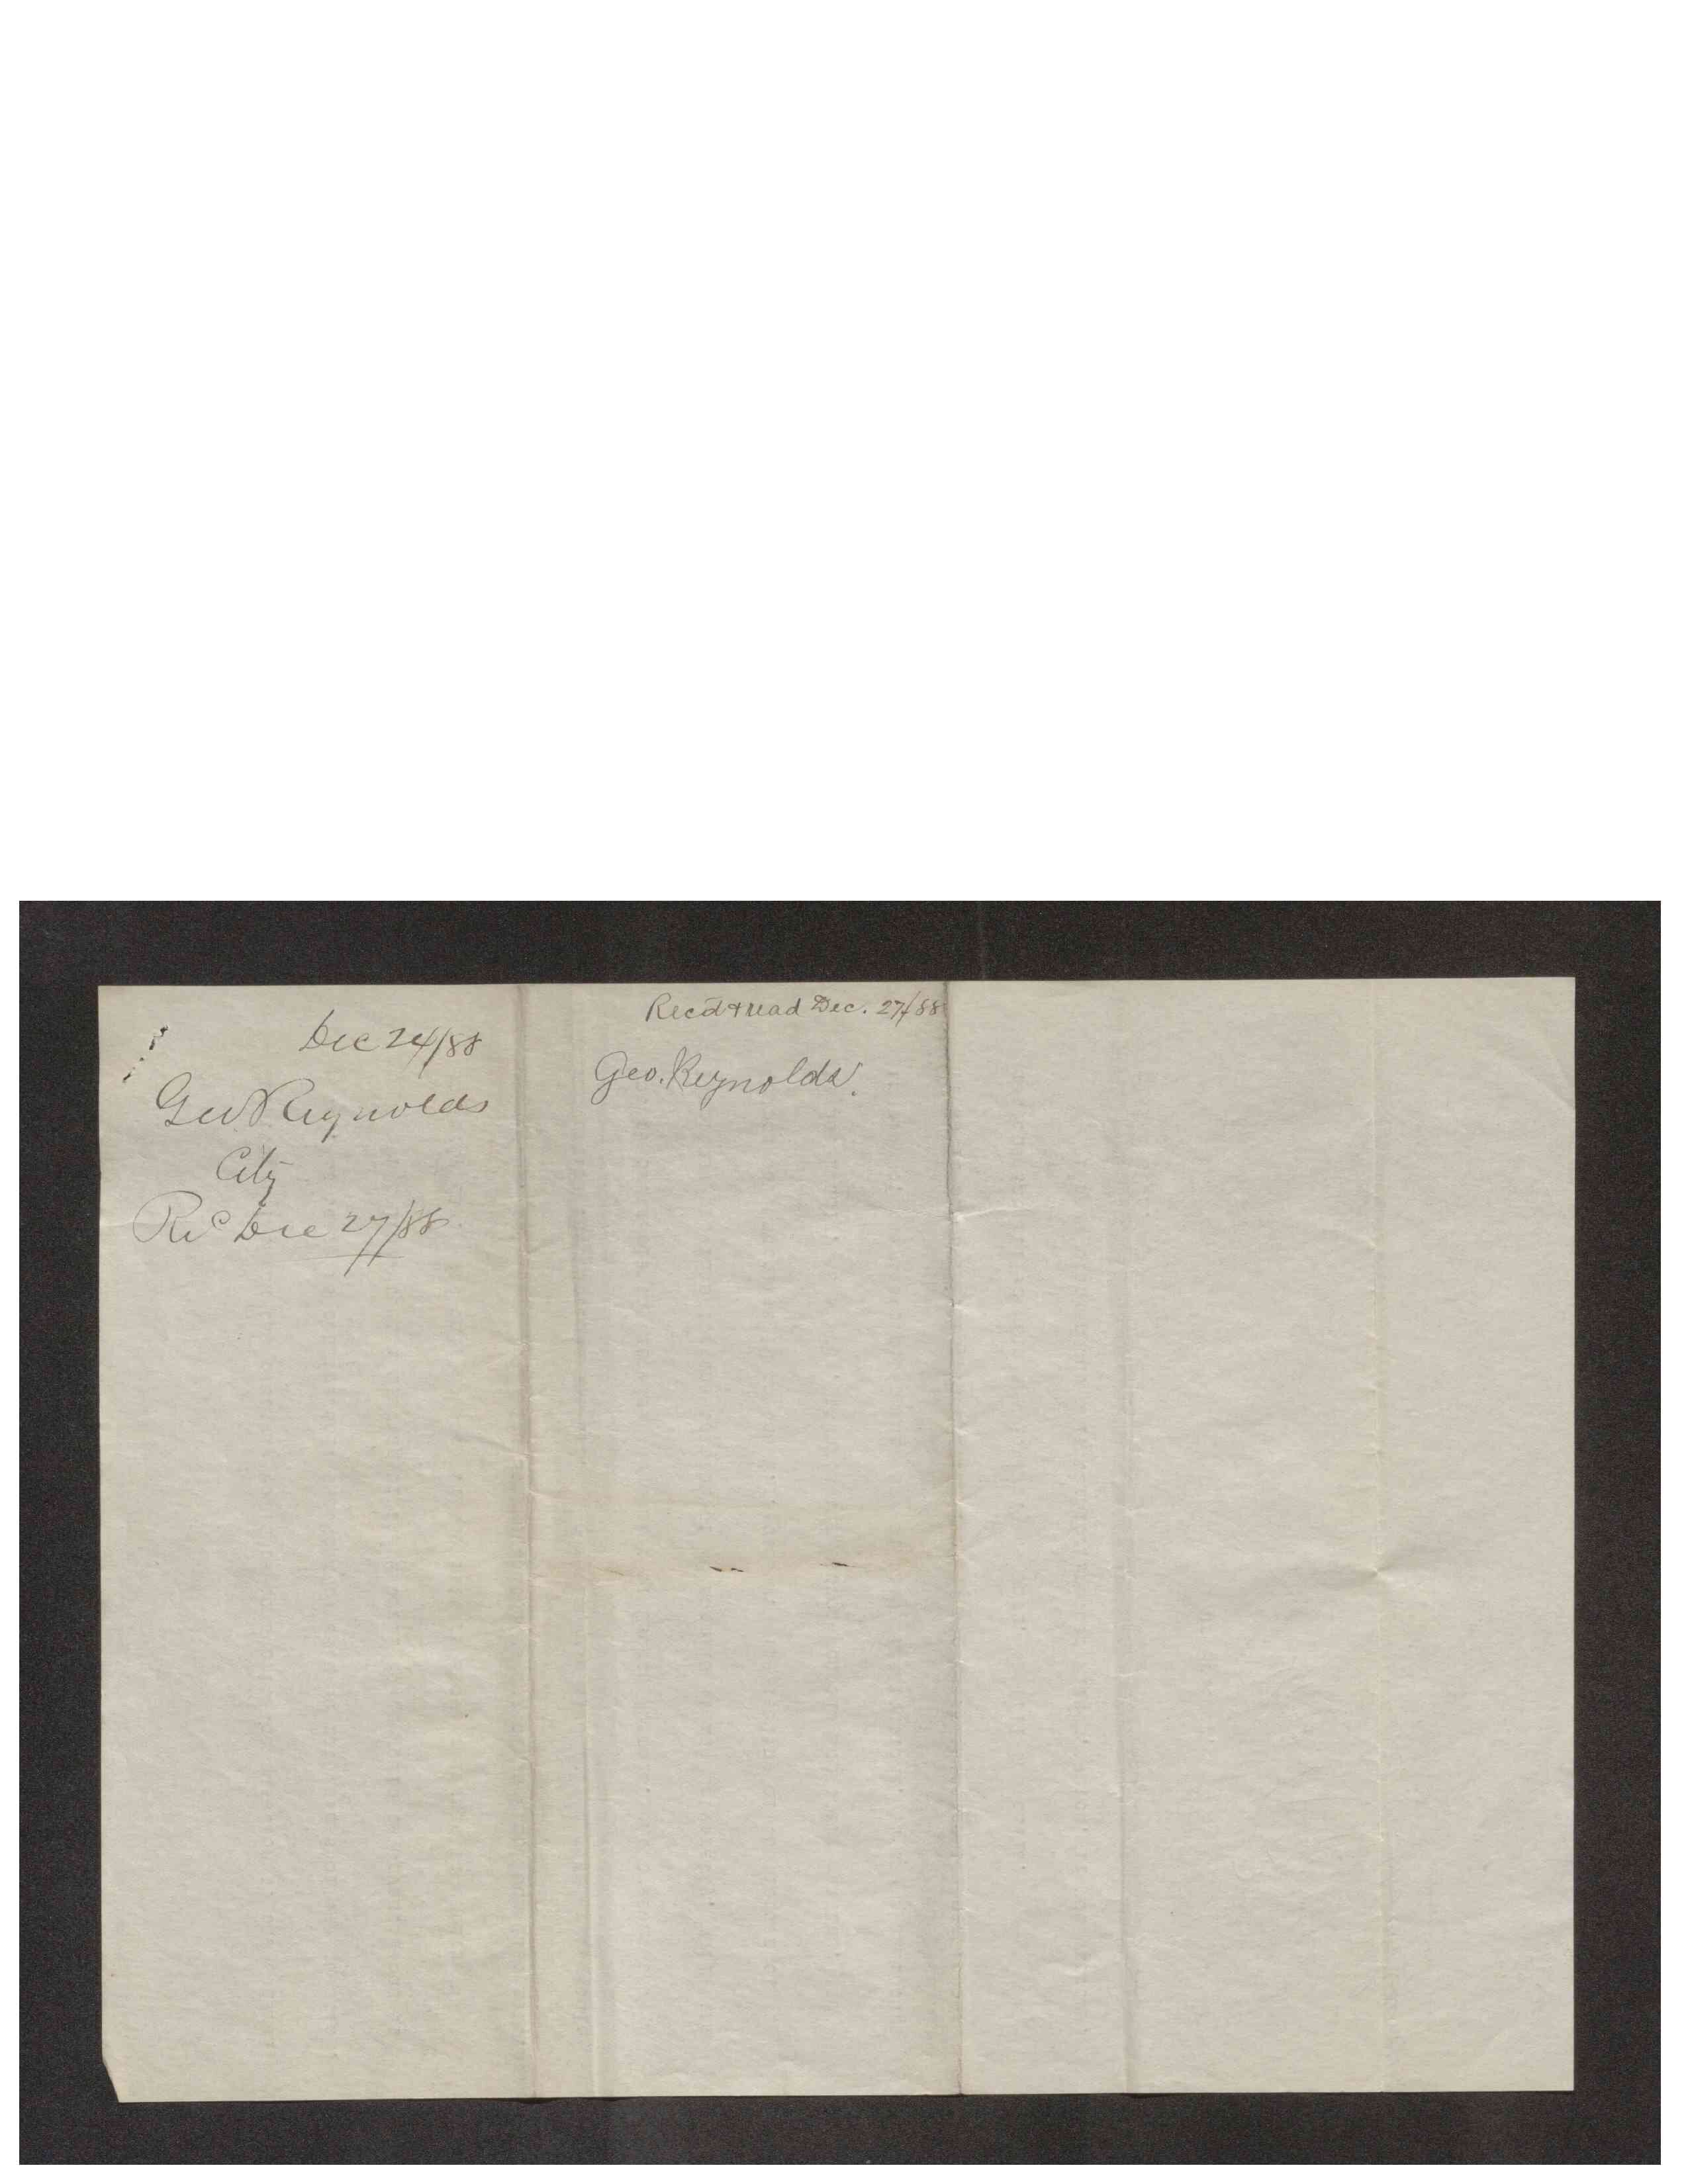 Dec 24/88
Geo Reynolds
City
Rec Dec 27/88
Rec'd & read Dec. 27/88
Geo. Reynolds.